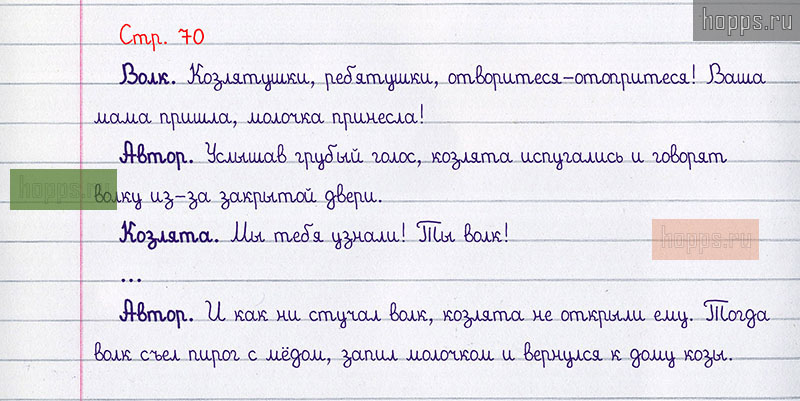 hopps.ru
Стр. 70
Волк. Козлятушки, ребятушки, отворитеся-отопритеся! Ваша
мама пришла, молочка принесла!
Автор. Услышав грубый голос, козлята испугались и говорят
hopps.ru
волку из-за закрытой двери.
Козлята. Мы тебя узнали! Ты волк!
hopps.ru
...
Автор. И как ни стучал волк, козлята не открыли ему. Тогда
волк съел пирог с мёдом, запил молочком и вернулся к дому козы.